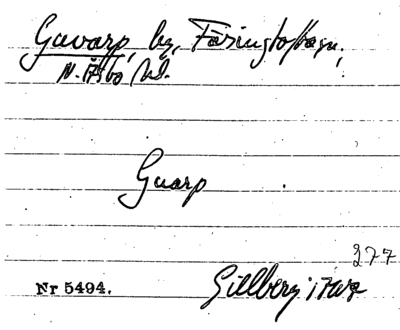 Gavarp, by, Färingtofta sn,
N. Åsbo hd.
Guarp
277
Nr 5494. Gillberg 1765